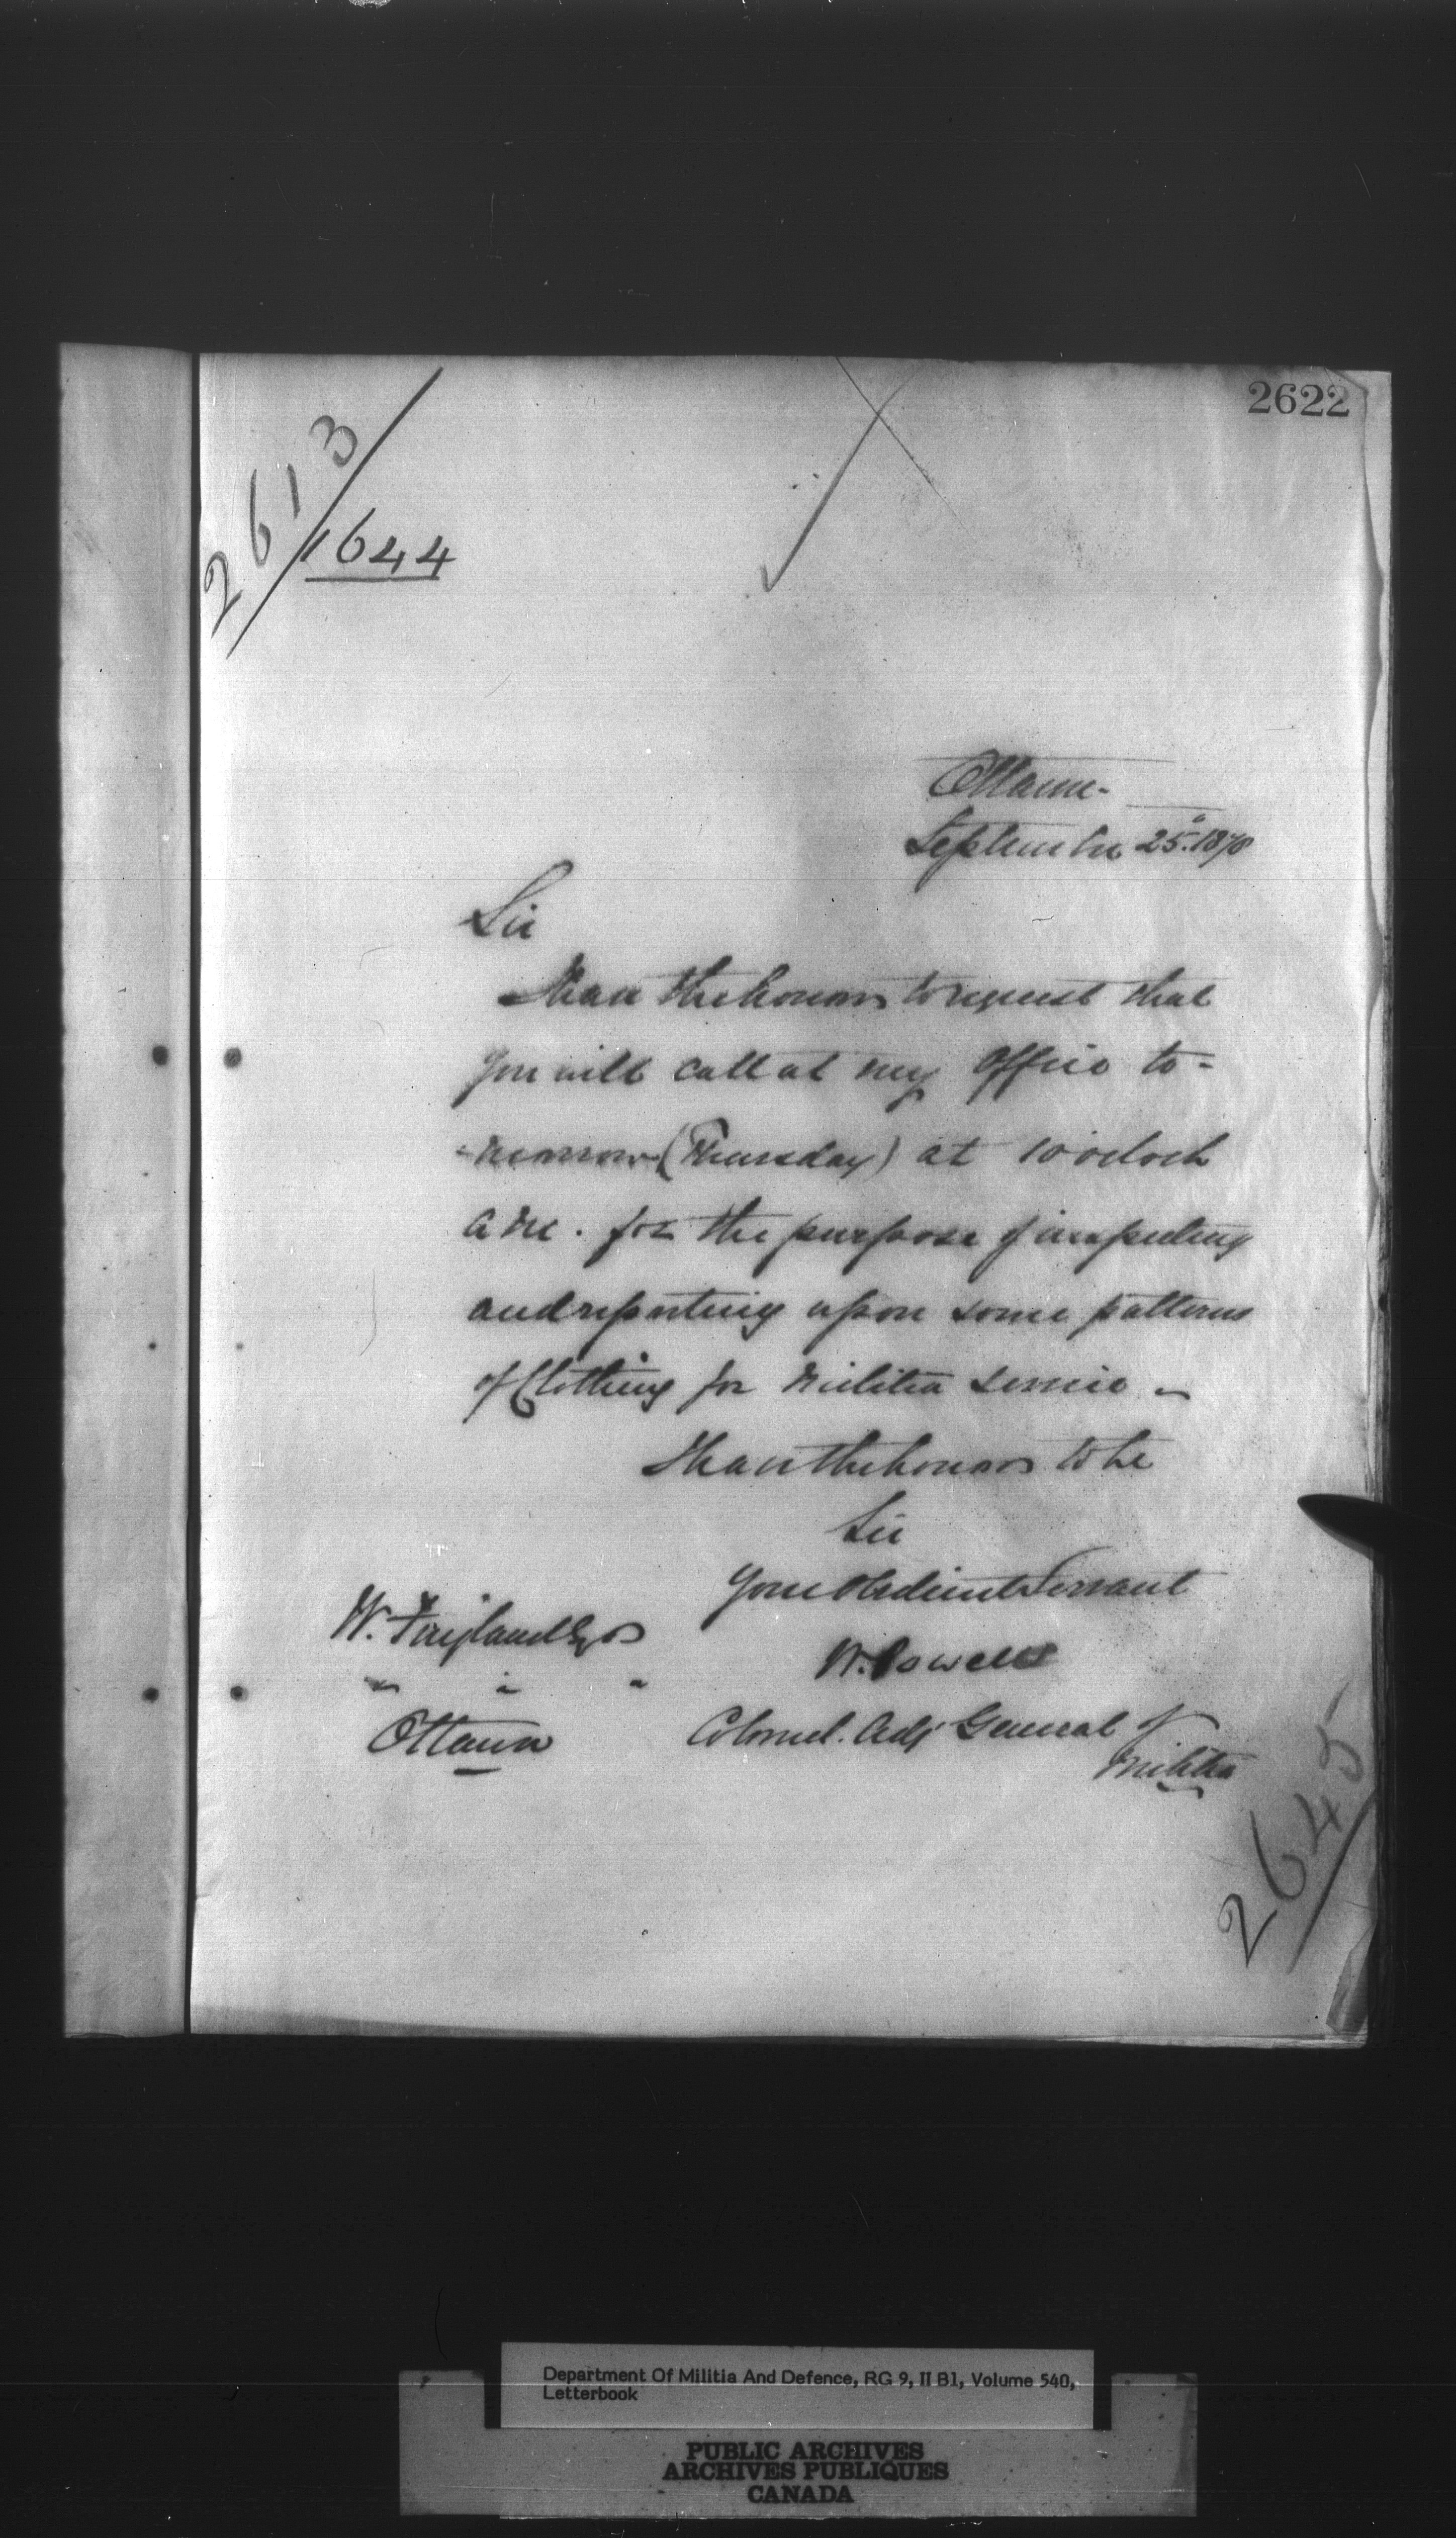 2622
2613
1644
Ottawa
September 25th. 1878
Sir
I have the honour to request that
you will call at my Office to-
-morrow (Thursday) at 10 o'clock
a m. for the purpose of inspecting
and reporting upon some patterns
of Clothing for Militia service -
I have the honour to be
Sir
Your obedient Servant
W. Powell
Colonel. Adj General of
Militia
W. Esqr
" " "
Ottawa
2645
Department Of Militia And Defence, RG 9, II B1, Volume 540,
Letterbook
PUBLIC ARCHIVES
ARCHIVES PUBLIQUES
CANADA